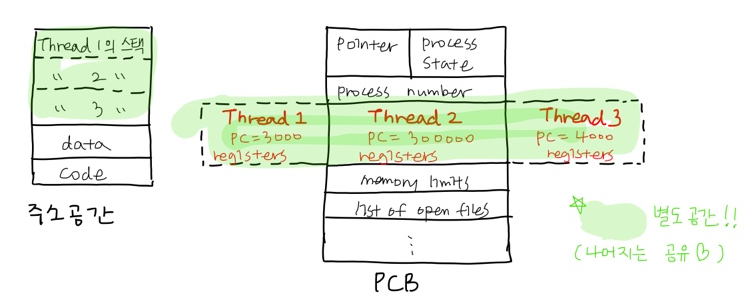 Thread 1의 스택
〃 2 〃
〃 3 〃
data
code
주소공간
pointer
process
state
process number
Thread 1
PC=3000
registers
Thread 2
PC=300000
registers
Thread 3
PC=4000
registers
memory limits
list of open files
⋮
PCB
☆ 별도공간!!
(나머지는 공유)